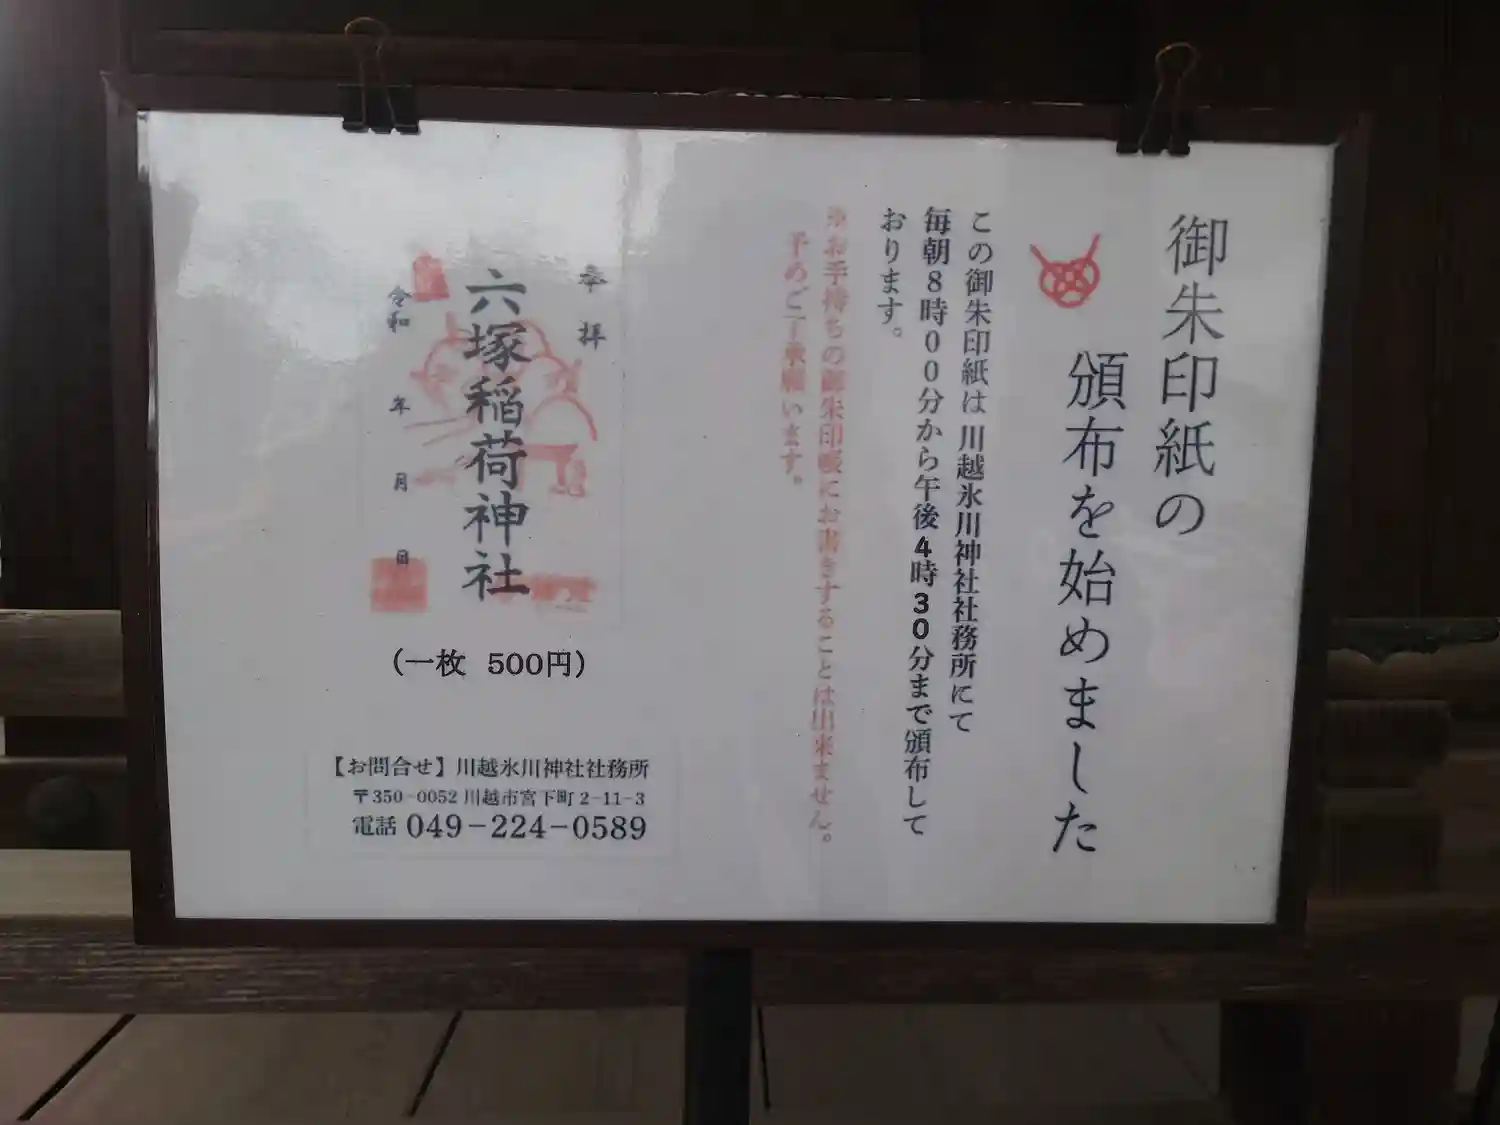 御朱印紙の
頒布を始めました
この御朱印紙は川越氷川神社社務所にて
毎朝8時00分から午後4時30分まで頒布して
おります。
※お手持ちの御朱印帳にお書きすることは出来ません。
予めご了承願います。
奉拝
六塚稲荷神社
令和 年 月 日
（一枚 500円）
【お問合せ】川越氷川神社社務所
〒350-0052 川越市宮下町2-11-3
電話 049-224-0589